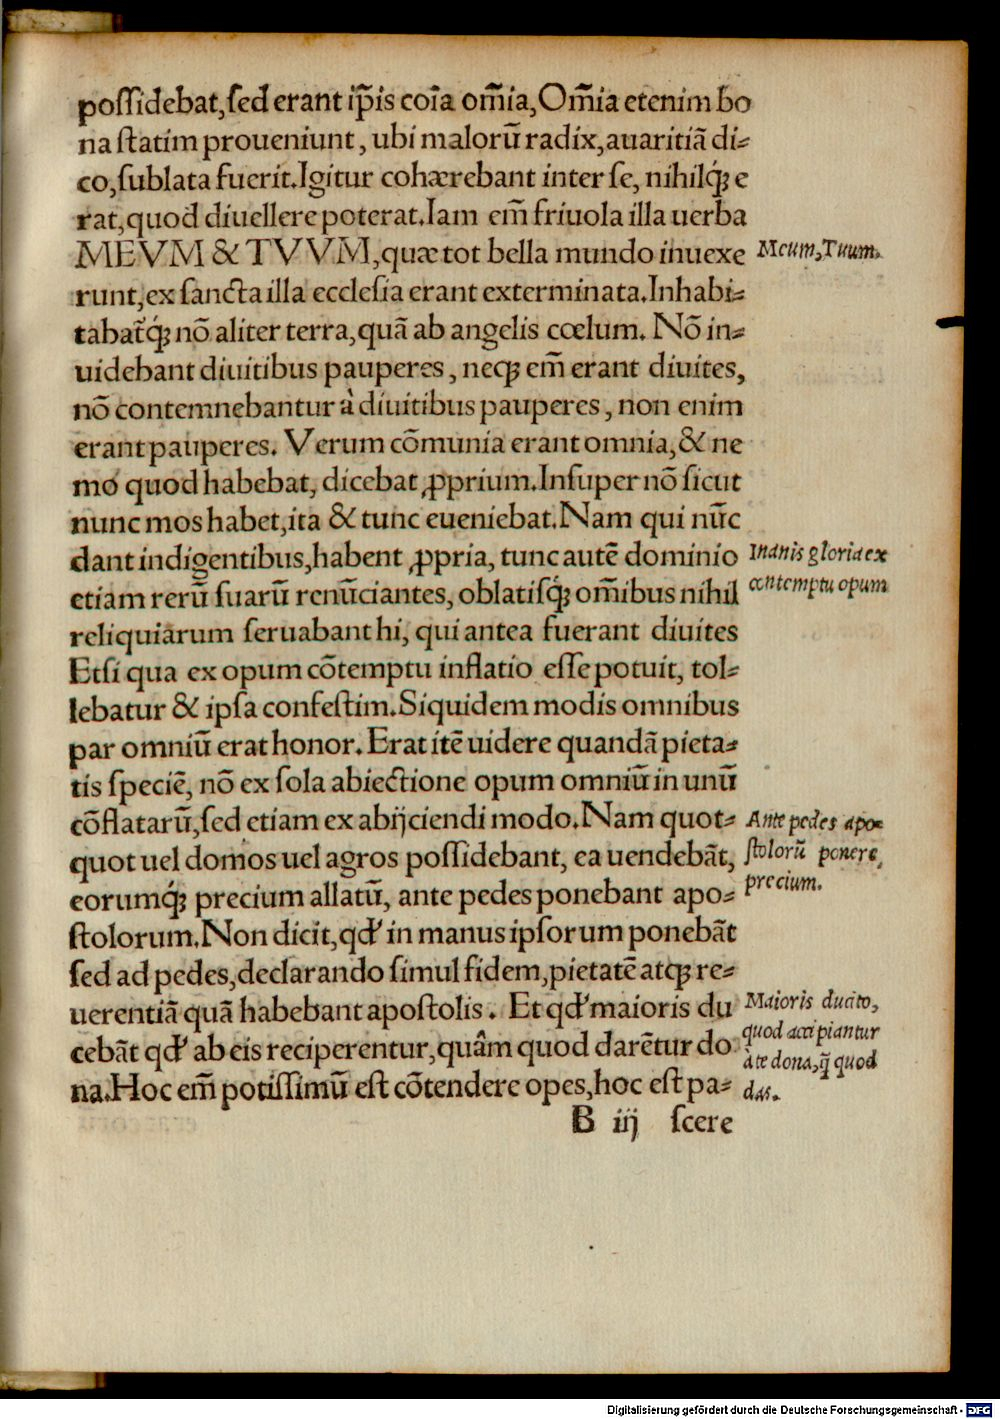 poſſidebat,ſed erant ip̃is coĩa om̃ia,Om̃ia etenim bo
na ſtatim proueniunt, ubi malorũ radix,auaritiã di⸗
co,ſublata fuerit.Igitur cohærebant inter ſe, nihilq́ꝫ e
rat,quod diuellere poterat.Iam em̃ friuola illa uerba
MEVM & TVVM,quæ tot bella mundo inuexe
runt,ex ſancta illa eccleſia erant exterminata.Inhabi⸗
tabat̃q́ꝫ nõ aliter terra,quã ab angelis cœlum. Nõ in⸗
uidebant diuitibus pauperes, neqꝫ em̃ erant diuites,
nõ contemnebantur à diuitibus pauperes, non enim
erant pauperes. Verum cõmunia erant omnia,& ne
mo quod habebat, dicebat ꝓprium.Inſuper nõ ſicut
nunc mos habet,ita & tunc eueniebat.Nam qui nũc
dant indigentibus,habent ꝓpria, tunc autẽ dominio
etiam rerũ ſuarũ renũciantes, oblatiſq́ꝫ om̃ibus nihil
reliquiarum ſeruabant hi, qui antea fuerant diuites
Etſi qua ex opum cõtemptu inflatio eſſe potuit, tol⸗
lebatur & ipſa confeſtim.Siquidem modis omnibus
par omniũ erat honor. Erat itẽ uidere quandã pieta⸗
tis ſpeciẽ, nõ ex ſola abiectione opum omniũ in unũ
cõflatarũ,ſed etiam ex abijciendi modo.Nam quot⸗
quot uel domos uel agros poſſidebant, ea uendebãt,
eorumq́ꝫ precium allatũ, ante pedes ponebant apo⸗
ſtolorum.Non dicit,qd' in manus ipſorum ponebãt
ſed ad pedes,declarando ſimul fidem,pietatẽ atqꝫ re⸗
uerentiã quã habebant apoſtolis. Et qd' maioris du
cebãt qd' ab eis reciperentur,quâm quod darẽtur do
na.Hoc em̃ potiſſimũ eſt cõtendere opes,hoc eſt pa⸗
B iij ſcere
Meum,Tuum.
Inanis gloria ex
contemptu opum
Ante pedes apo⸗
ſtolorũ ponere
precium.
Maioris ducito,
quod accipiantur
à te dona,q̃ quod
das.
Digitalisierung gefördert durch die Deutsche Forschungsgemeinschaft - DFG